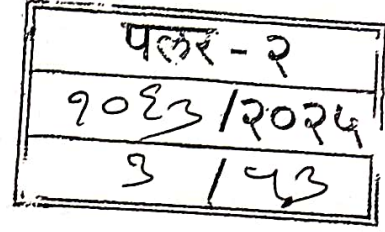 पलर - २
१०६३ /२०२५
३ / ५३